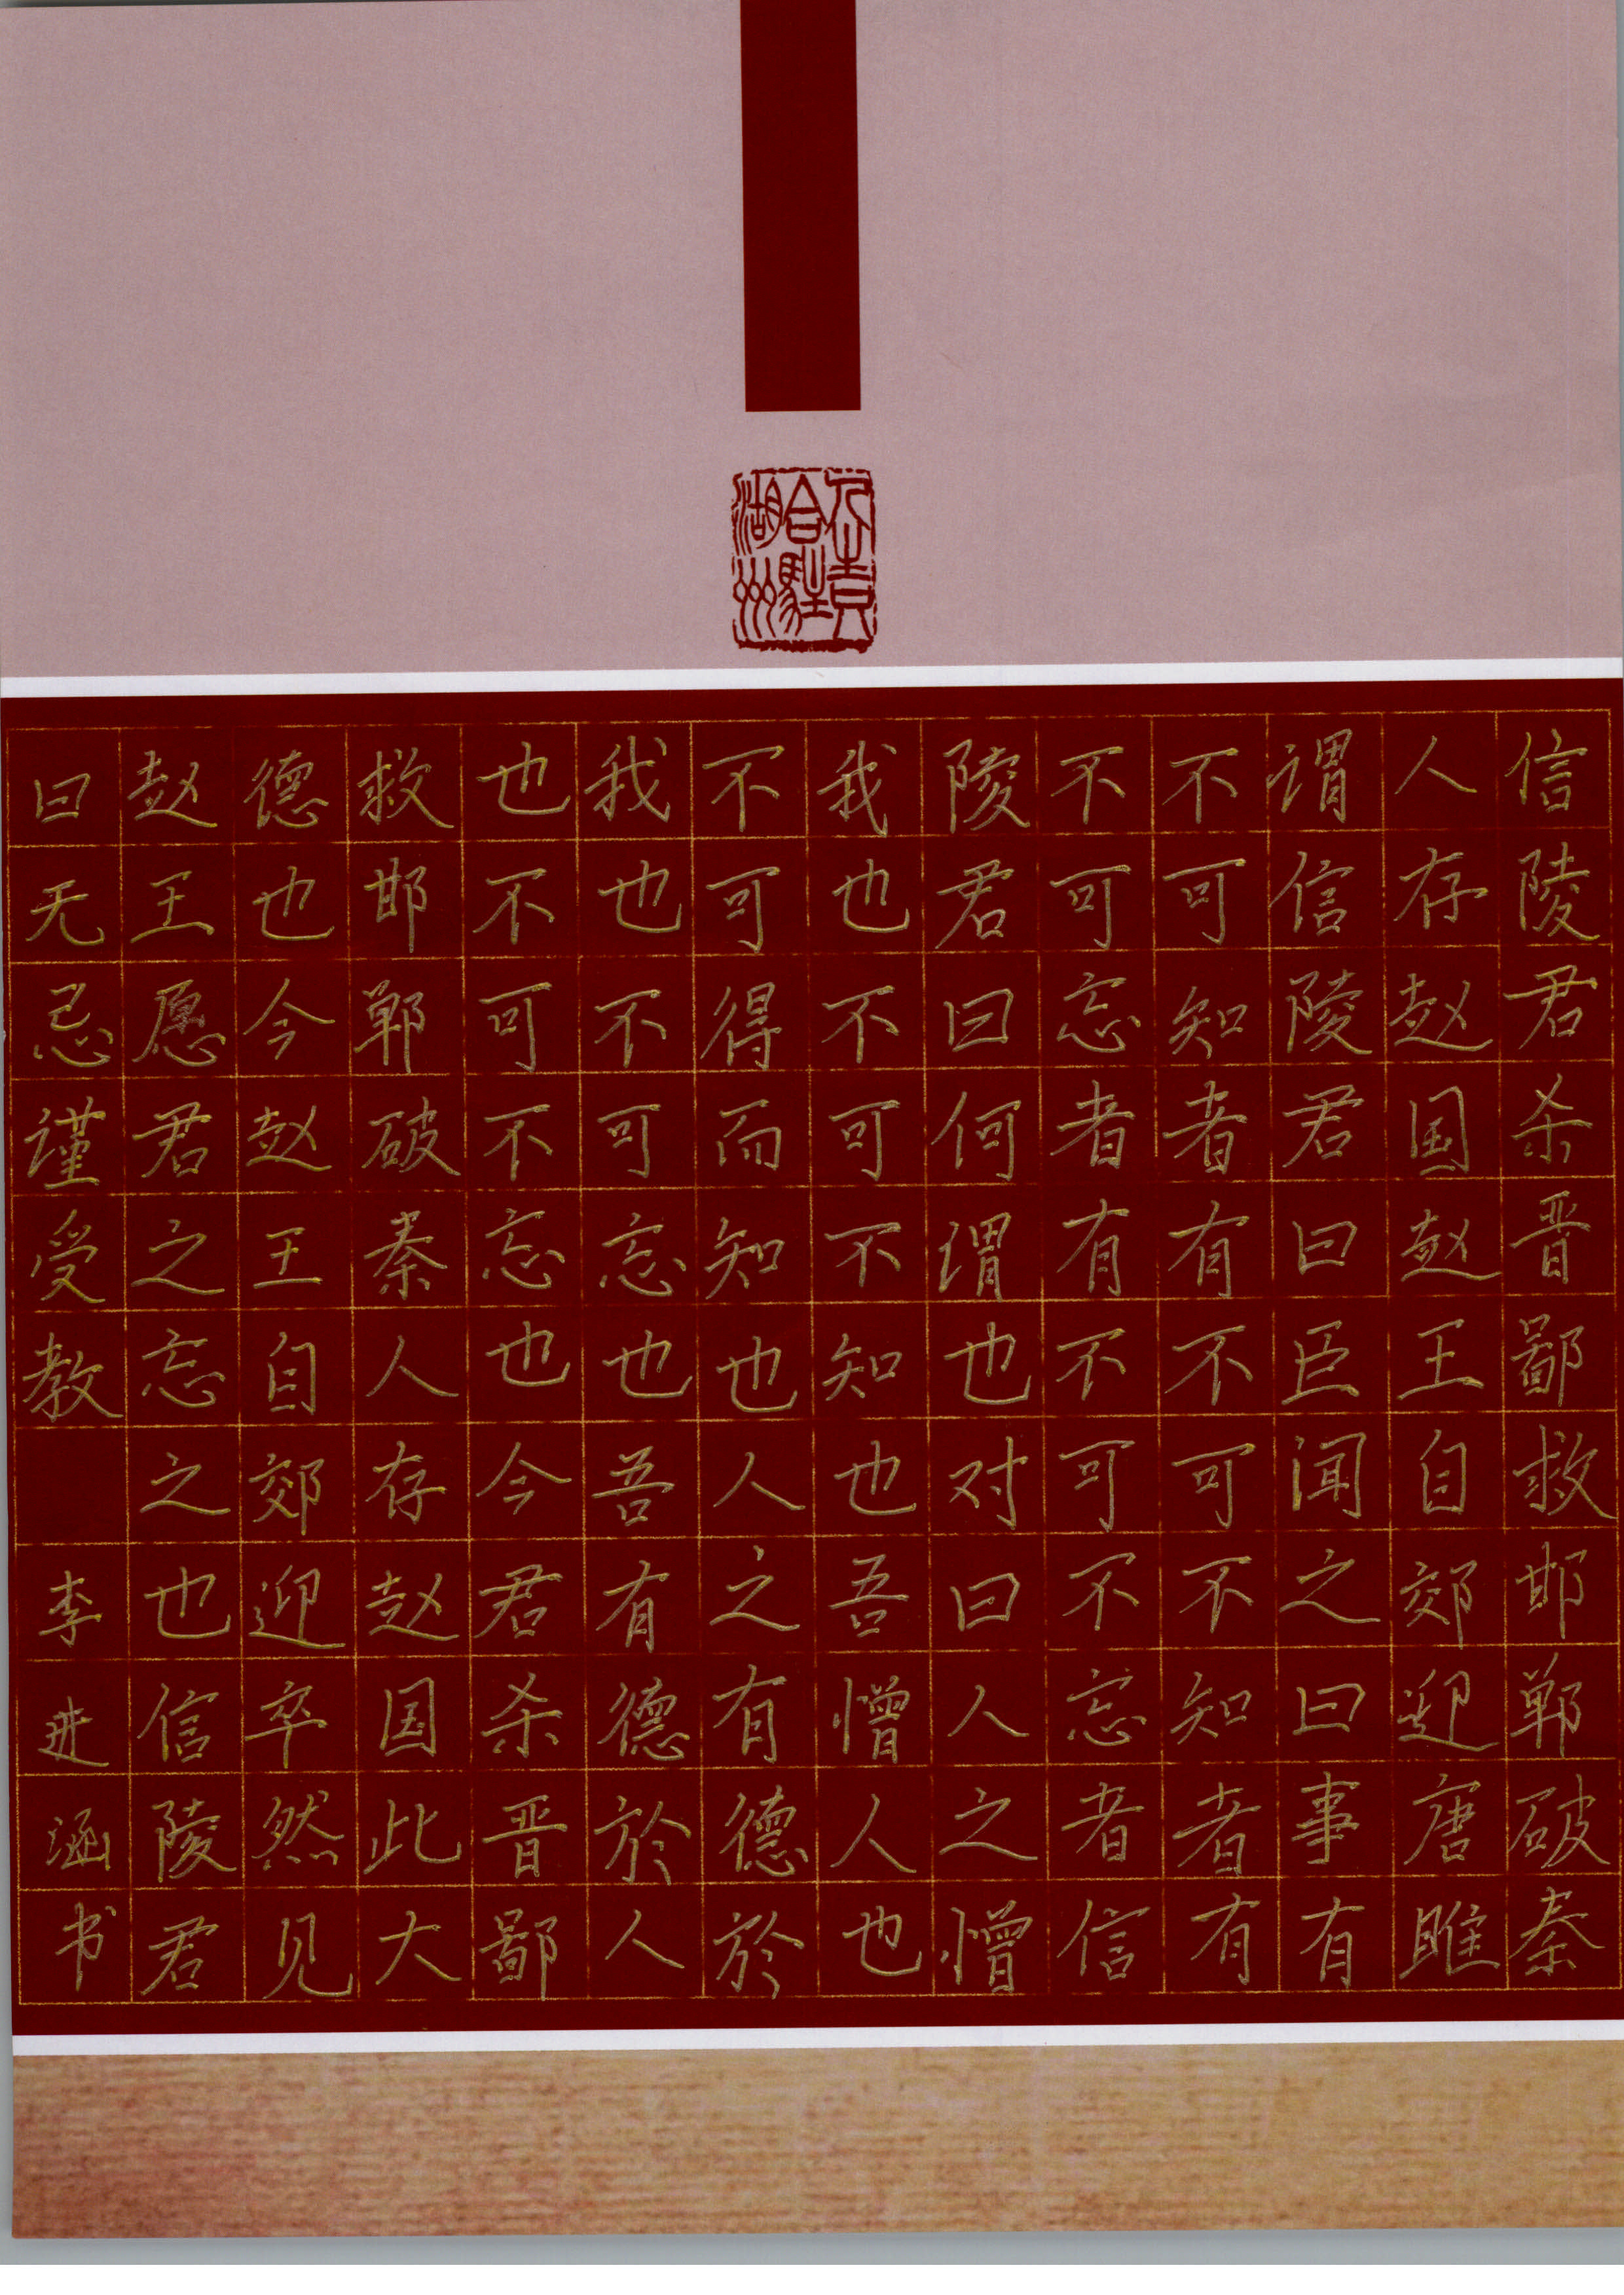 信陵君杀晋鄙救邯郸破秦
人存赵国赵王自郊迎唐雎
谓信陵君曰臣闻之曰事有
不可知者有不可不知者有
不可忘者有不可不忘者信
陵君曰何谓也对曰人之憎
我也不可不知也吾憎人也
不可得而知也人之有德於
我也不可忘也吾有德於人
也不可不忘也今君杀晋鄙
救邯郸破秦人存赵国此大
德也今赵王自郊迎卒然见
赵王愿君之忘之也信陵君
曰无忌谨受教 李进涵书